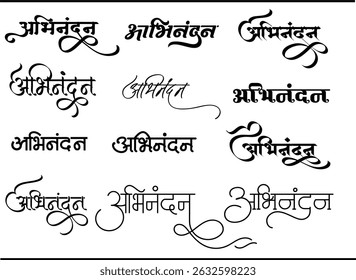 अभिनंदन अभिनंदन अभिनंदन
अभिनंदन अभिनंदन अभिनंदन
अभिनंदन अभिनंदन अभिनंदन
अभिनंदन अभिनंदन अभिनंदन
shutterstock.com · 2632598223